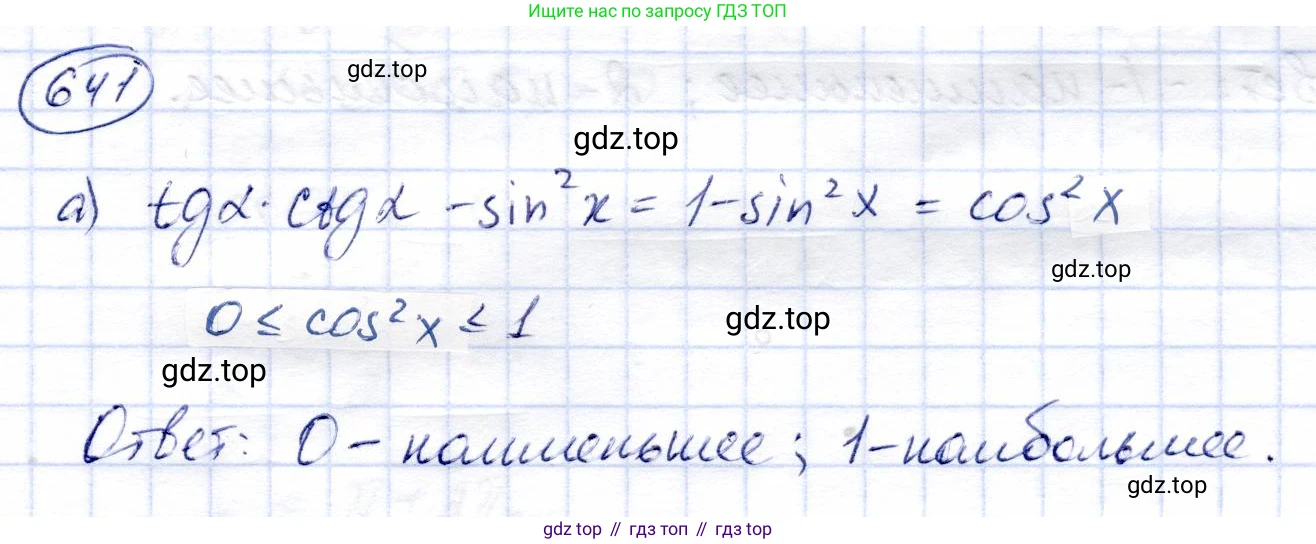 Ищите нас по запросу ГДЗ ТОП
641
gdz.top
gdz.top
a) tgα · ctgα - sin²x = 1 - sin²x = cos²x
gdz.top
0 ≤ cos²x ≤ 1
gdz.top
gdz.top
Ответ: 0 - наименьшее; 1 - наибольшее.
gdz.top
gdz top // гдз топ // gdz top